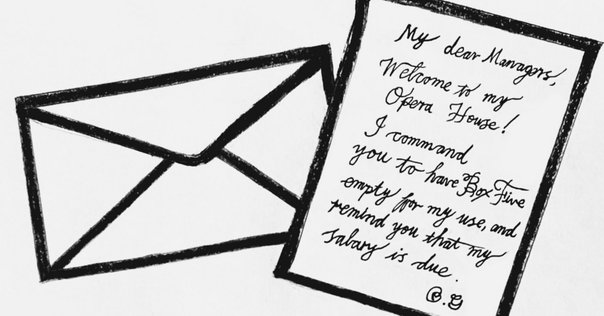 My dear Managers,
Welcome to my
Opera House!
I command
you to have Box Five
empty for my use, and
remind you that my
salary is due.
O.G